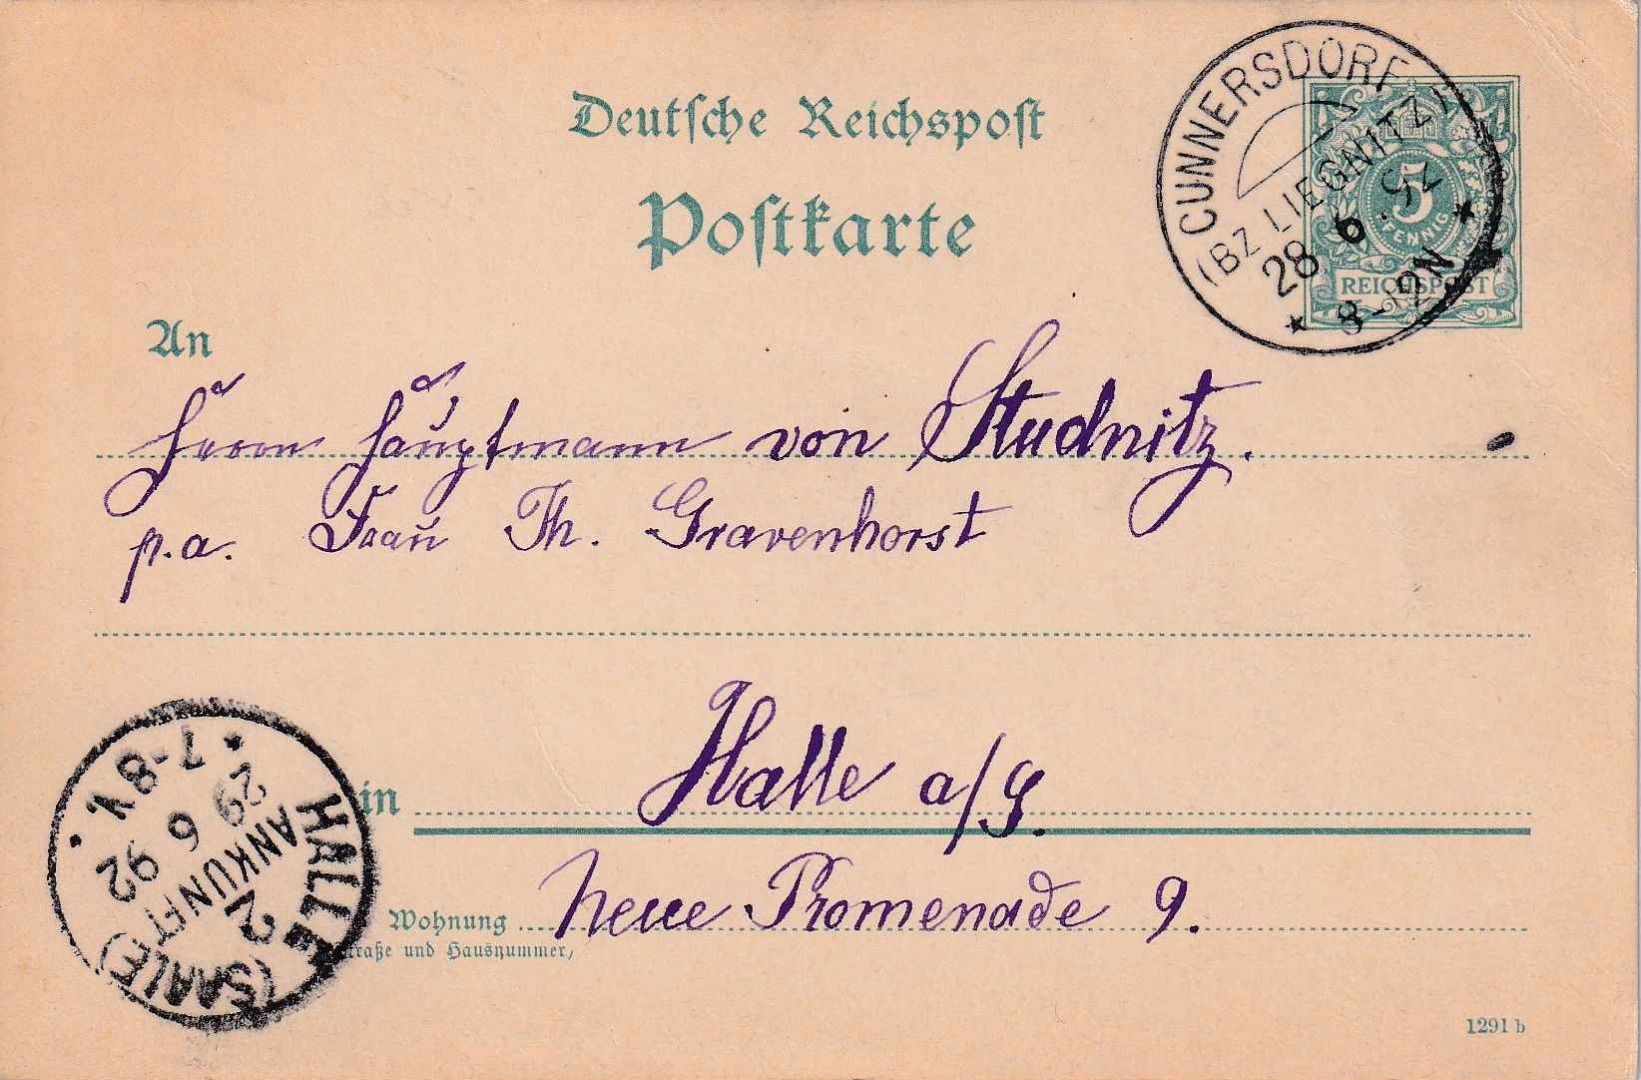 Deutsche Reichspost
Postkarte
CUNNERSDORF
(BZ LIEGNITZ)
28 6 92
8-12N
5
PFENNIG
REICHSPOST
An
Herrn Hauptmann von Studnitz.
p.a. Frau Th. Gravenhorst
in Halle a/S.
Wohnung Neue Promenade 9.
Straße und Hausnummer)
HALLE (SAALE)
2
ANKUNFT
29 6 92
7-8V.
1291 b